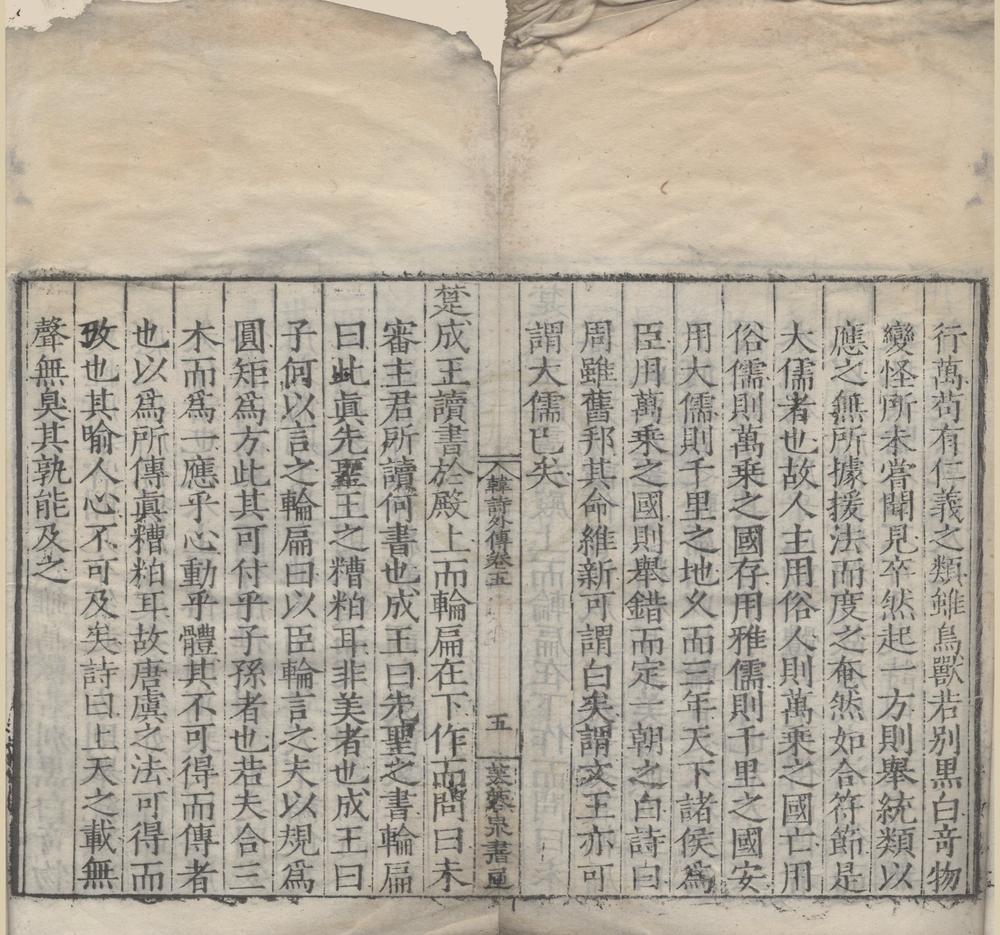 行萬苟有仁義之類雖鳥獸若别黒白竒物
變怪所未嘗聞見卒然起一方則舉統類以
應之無所據援法而度之奄然如合符節是
大儒者也故人主用俗人則萬乗之國亡用
俗儒則萬乗之國存用雅儒則千里之國安
用大儒則千里之地乂而三年天下諸侯爲
臣用萬乗之國則舉錯而定一朝之白詩曰
周雖舊邦其命維新可謂白矣謂文王亦可
謂大儒已矣
韓詩外傳卷五
五
芙蓉泉書屋
楚成王讀書於殿上而輪扁在下作而問曰未
審主君所讀何書也成王曰先聖之書輪扁
曰此眞先聖王之糟粕耳非美者也成王曰
子何以言之輪扁曰以臣輪言之夫以規爲
圓矩爲方此其可付乎子孫者也若夫合三
木而爲一應乎心動乎體其不可得而傳者
也以爲所傳眞糟粕耳故唐虞之法可得而
攷也其喻人心不可及矣詩曰上天之載無
聲無臭其孰能及之